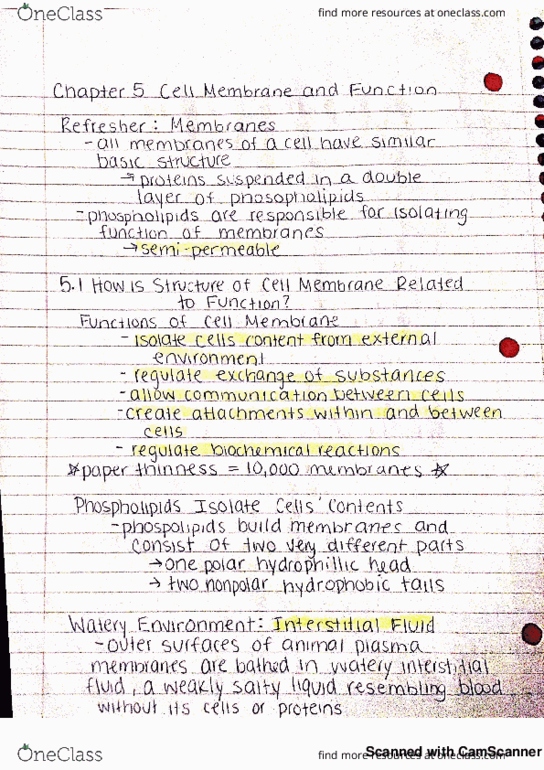 OneClass
find more resources at oneclass.com
Chapter 5 Cell Membrane and Function
Refresher: Membranes
- all membranes of a cell have similar
basic structure
→ proteins suspended in a double
layer of phosopholipids
- phospholipids are responsible for isolating
function of membranes
→ semi-permeable
5.1 How is Structure of Cell Membrane Related
to Function?
Functions of Cell Membrane
- isolate cells content from external
environment
- regulate exchange of substances
- allow communication between cells
- create attachments within and between
cells
- regulate biochemical reactions
*paper thinness = 10,000 membranes *
Phospholipids Isolate Cells' Contents
- phospolipids build membranes and
consist of two very different parts
→ one polar hydrophillic head
→ two nonpolar hydrophobic tails
Watery Environment: Interstitial Fluid
- outer surfaces of animal plasma
membranes are bathed in watery interstitial
fluid, a weakly salty liquid resembling blood
without its cells or proteins
OneClass
find more resources at oneclass.com
Scanned with CamScanner